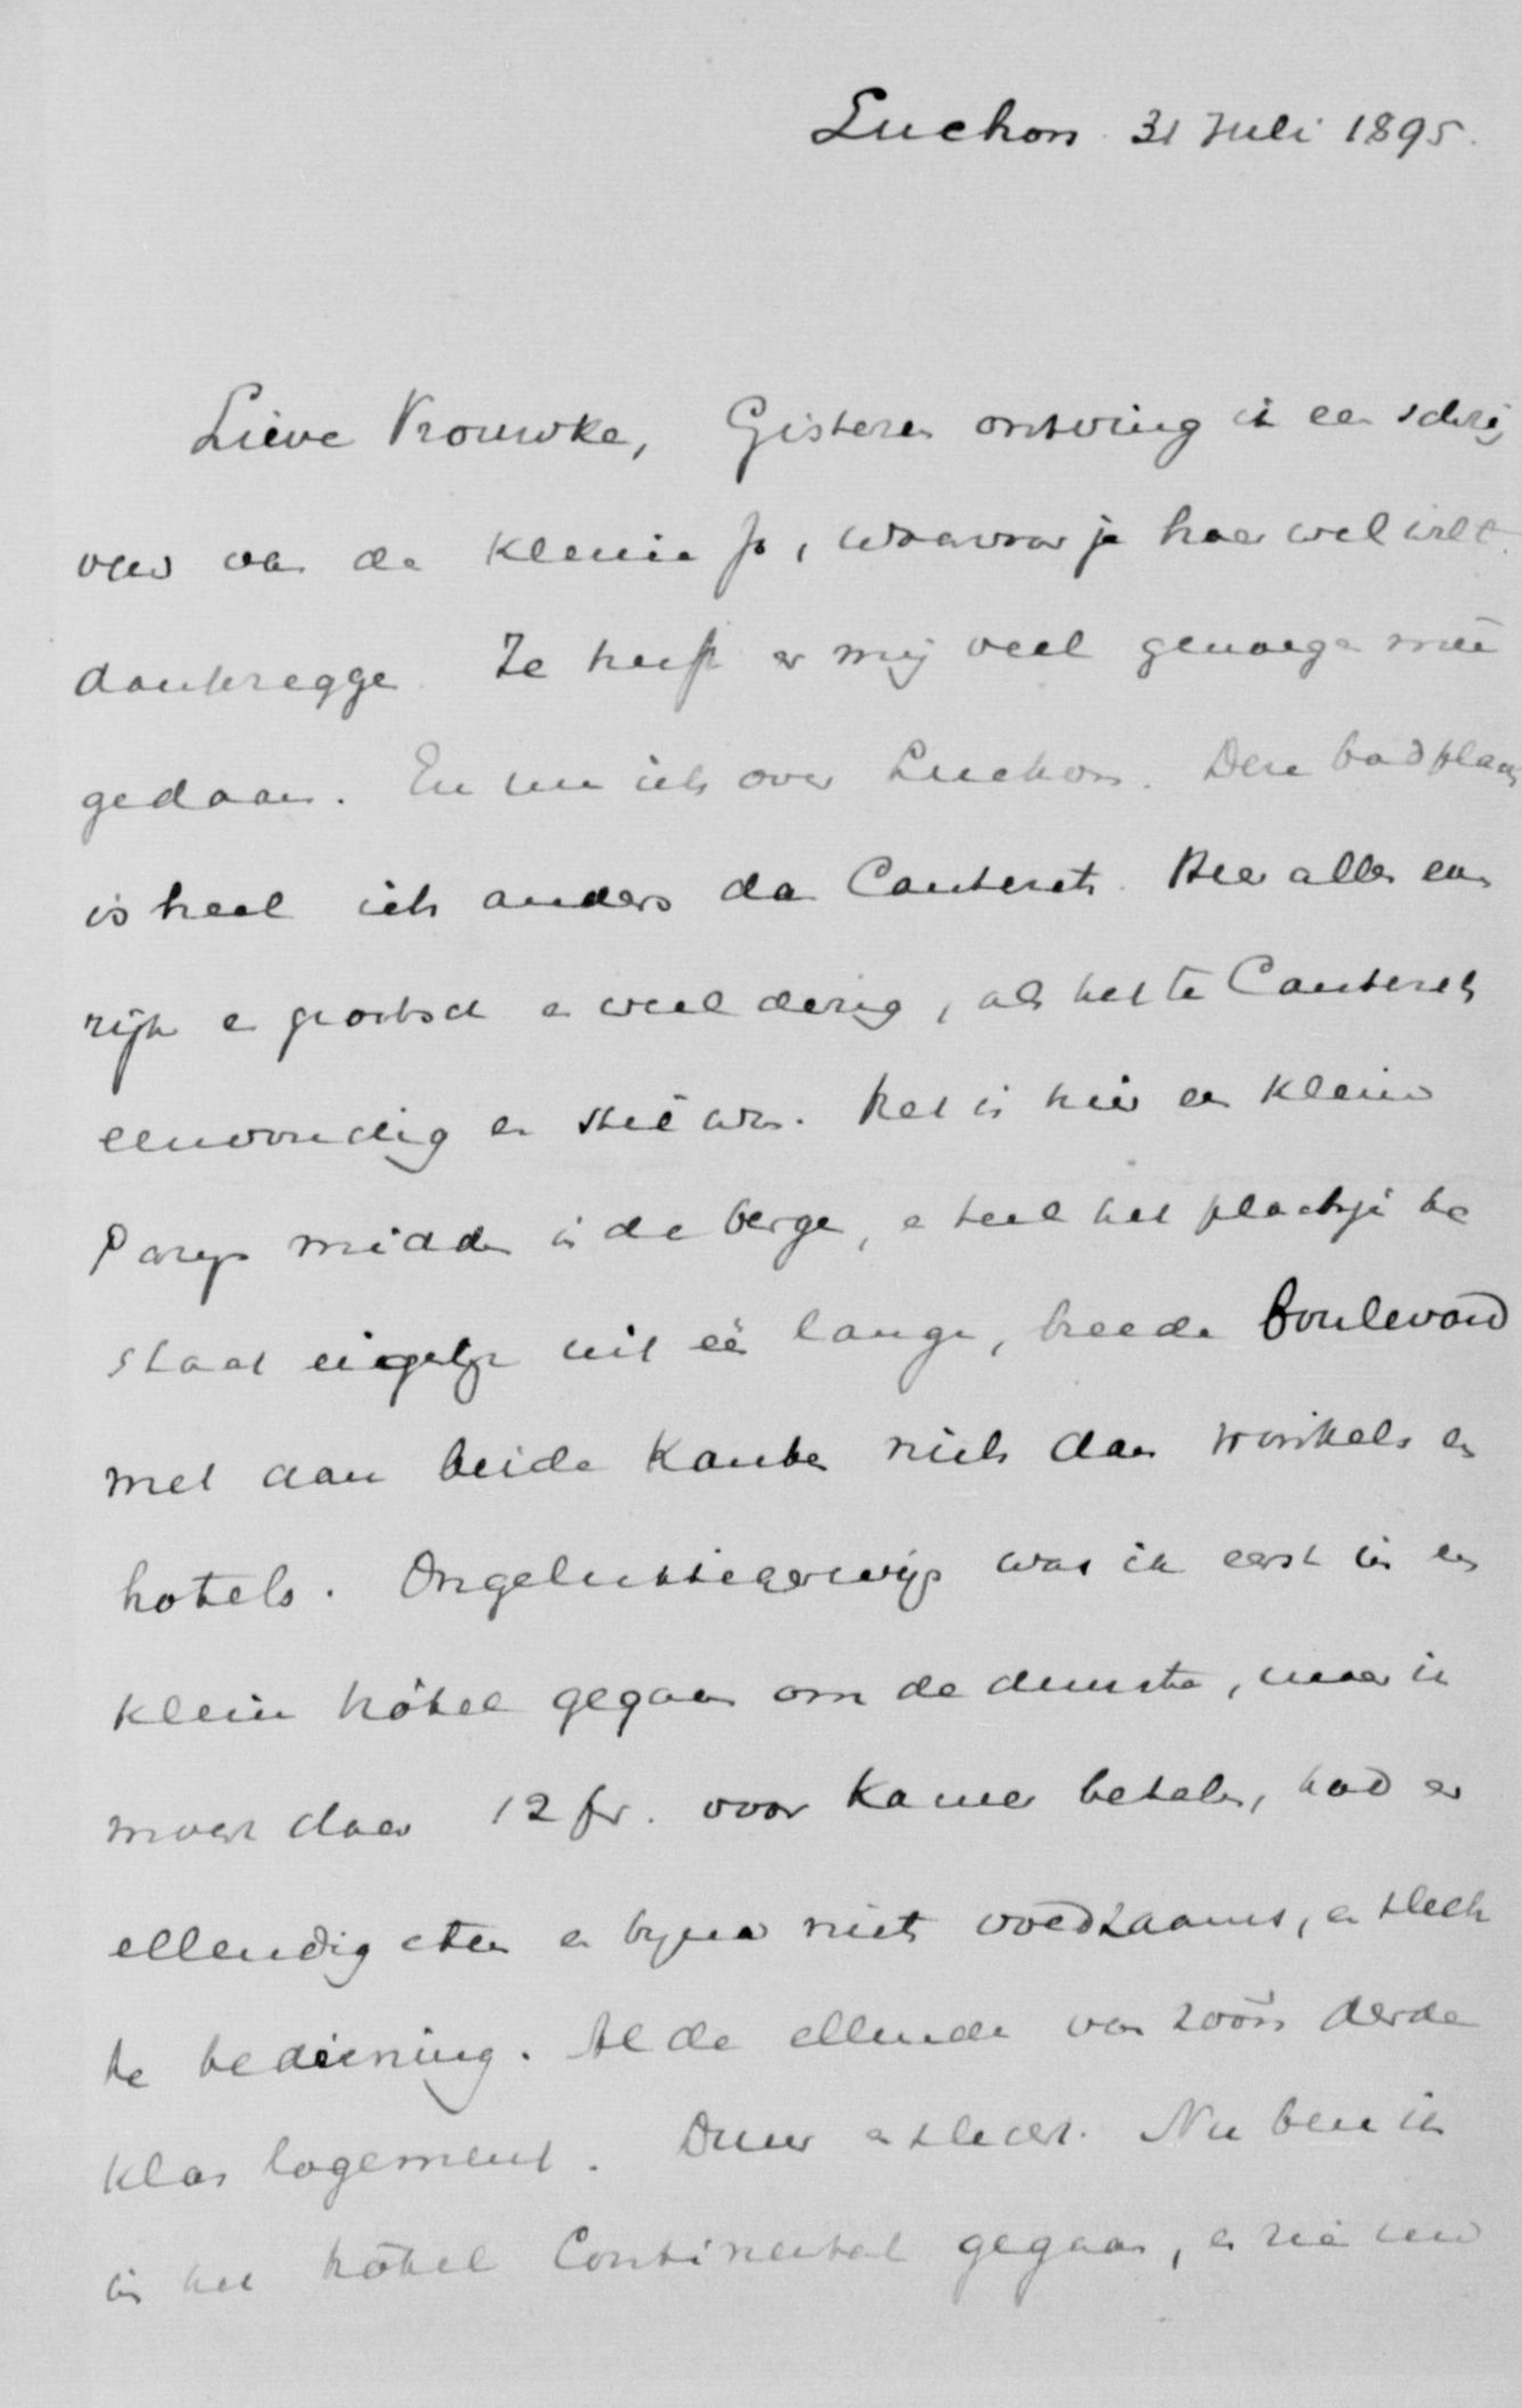 Luchon 31 Juli 1895.
Lieve Vrouwke, Gisteren ontving ik een schrij
ven van de kleine Jo, waarvoor je haar wel wilt
dankzegge. Ze heeft er mij veel genoege mee
gedaan. En nu iets over Luchon. Deze badplaats
is heel iets anders dan Cauterets. Hier alles even
rijk en grootsch en weelderig, als het te Cauterets
eenvoudig en stil was. Het is hier een klein
Parijs midden in de bergen, en heel het plaatsje be
staat eigenlijk uit één lange, breede boulevard
met aan beide kanten niets dan winkels en
hotels. Ongelukkigerwijs was ik eerst in een
klein hôtel gegaan om de duurste, maar ik
moest daar 12 fr. voor kamer betalen, had er
ellendig eten en bijna niets voedzaams, en slech
te bediening. Al de ellende van zoo'n derde
klas logement. Duur en slecht. Nu ben ik
in het hôtel Continental gegaan, en zie nu